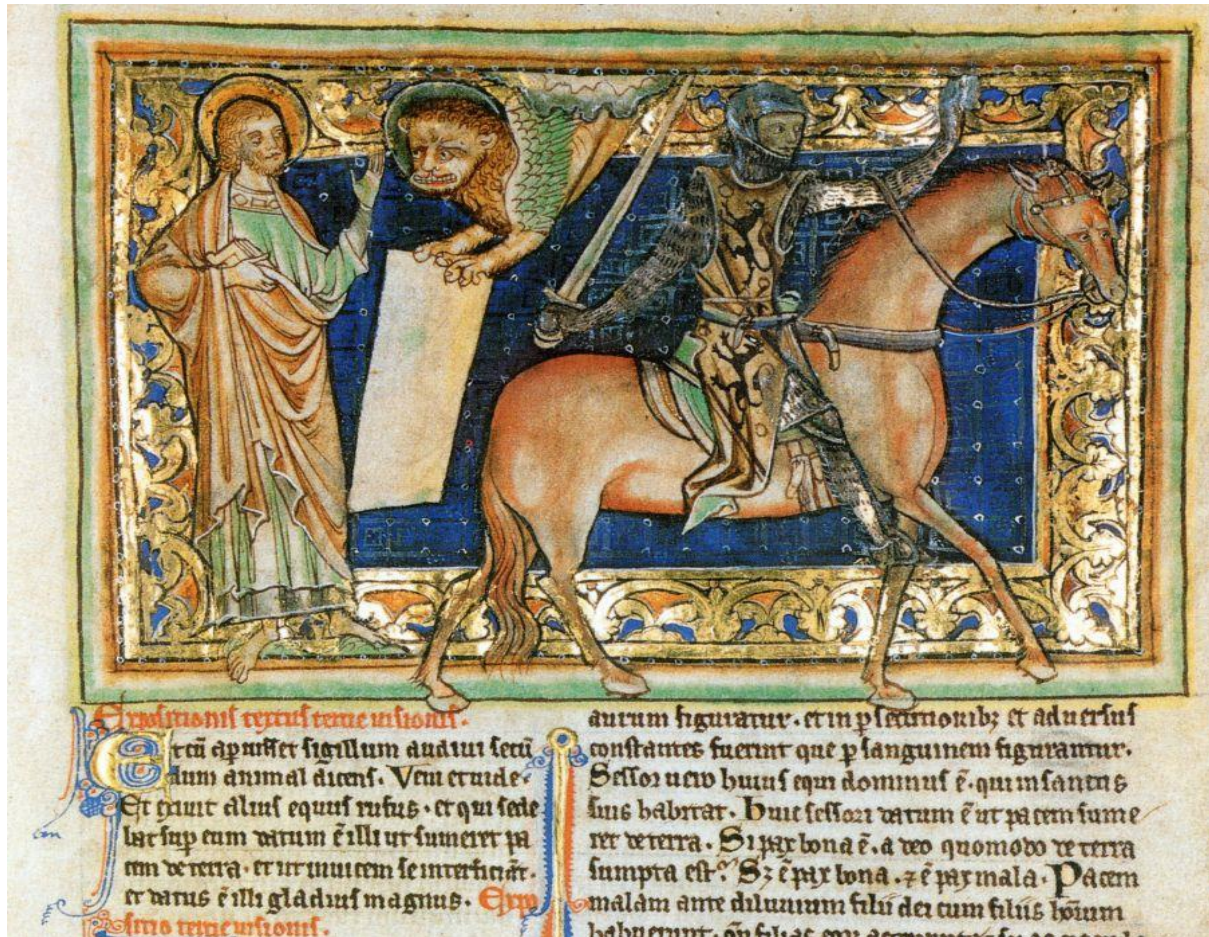 Expositionis textus tercie uisionis.
Et cū apuisset sigillum audiui secū
dum animal dicens. Veni et uide.
Et exiuit alius equus rufus. et qui sede
bat sup eum datum ē illi ut sumeret pa
cem de terra. et ut inuicem se interficiāt.
et datus ē illi gladius magnus. Expo
sitio tercie uisionis.
aurum figuratur. et in psecutionibz et aduersis
constantes fuerint que p sanguinem figurantur.
Sessor uero huius equi dominus ē. qui in sanctis
suis habitat. Huic sessori datum ē ut pacem sume
ret de terra. Si pax bona ē. a deo quomodo de terra
sumpta est? Sz ē pax bona. ⁊ ē pax mala. Pacem
malam ante diluuium filii dei cum filiis hoīum
habuerunt. filias